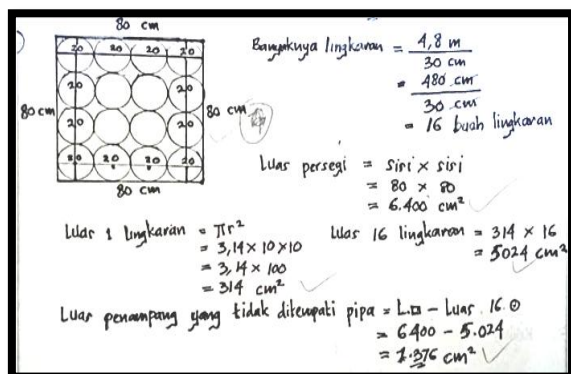 80 cm
20 20 20 20
20 20
80 cm 80 cm
20 20
20 20 20 20
80 cm
Banyaknya lingkaran = 4,8 m
30 cm
= 480 cm
30 cm
= 16 buah lingkaran
Luas persegi = sisi × sisi
= 80 × 80
= 6.400 cm²
Luas 1 lingkaran = πr²
= 3,14 × 10 × 10
= 3,14 × 100
= 314 cm²
Luas 16 lingkaran = 314 × 16
= 5024 cm²
Luas penampang yang tidak ditempati pipa = L.□ – Luas 16.⊙
= 6400 – 5.024
= 1.376 cm²